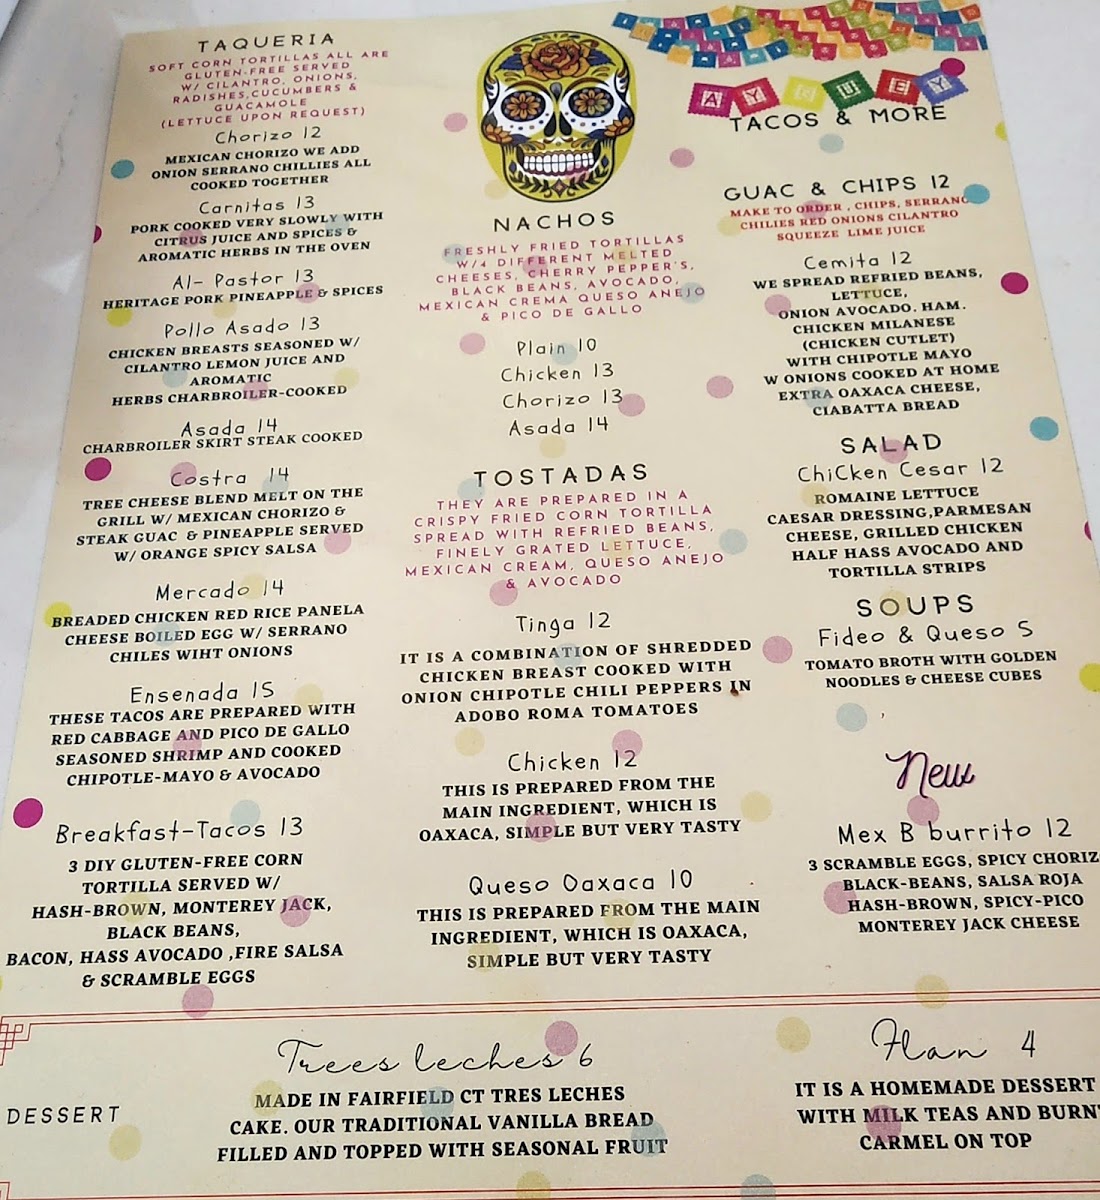 TAQUERIA
SOFT CORN TORTILLAS ALL ARE
GLUTEN-FREE SERVED
W/ CILANTRO, ONIONS,
RADISHES,CUCUMBERS &
GUACAMOLE
(LETTUCE UPON REQUEST)
Chorizo 12
MEXICAN CHORIZO WE ADD
ONION SERRANO CHILLIES ALL
COOKED TOGETHER
Carnitas 13
PORK COOKED VERY SLOWLY WITH
CITRUS JUICE AND SPICES &
AROMATIC HERBS IN THE OVEN
Al- Pastor 13
HERITAGE PORK PINEAPPLE & SPICES
Pollo Asado 13
CHICKEN BREASTS SEASONED W/
CILANTRO LEMON JUICE AND
AROMATIC
HERBS CHARBROILER-COOKED
Asada 14
CHARBROILER SKIRT STEAK COOKED
Costra 14
TREE CHEESE BLEND MELT ON THE
GRILL W/ MEXICAN CHORIZO &
STEAK GUAC & PINEAPPLE SERVED
W/ ORANGE SPICY SALSA
Mercado 14
BREADED CHICKEN RED RICE PANELA
CHEESE BOILED EGG W/ SERRANO
CHILES WIHT ONIONS
Ensenada 15
THESE TACOS ARE PREPARED WITH
RED CABBAGE AND PICO DE GALLO
SEASONED SHRIMP AND COOKED
CHIPOTLE-MAYO & AVOCADO
Breakfast-Tacos 13
3 DIY GLUTEN-FREE CORN
TORTILLA SERVED W/
HASH-BROWN, MONTEREY JACK,
BLACK BEANS,
BACON, HASS AVOCADO ,FIRE SALSA
& SCRAMBLE EGGS
NACHOS
FRESHLY FRIED TORTILLAS
W/4 DIFFERENT MELTED
CHEESES, CHERRY PEPPER'S,
BLACK BEANS, AVOCADO,
MEXICAN CREMA QUESO ANEJO
& PICO DE GALLO
Plain 10
Chicken 13
Chorizo 13
Asada 14
TOSTADAS
THEY ARE PREPARED IN A
CRISPY FRIED CORN TORTILLA
SPREAD WITH REFRIED BEANS,
FINELY GRATED LETTUCE,
MEXICAN CREAM, QUESO ANEJO
& AVOCADO
Tinga 12
IT IS A COMBINATION OF SHREDDED
CHICKEN BREAST COOKED WITH
ONION CHIPOTLE CHILI PEPPERS IN
ADOBO ROMA TOMATOES
Chicken 12
THIS IS PREPARED FROM THE
MAIN INGREDIENT, WHICH IS
OAXACA, SIMPLE BUT VERY TASTY
Queso Oaxaca 10
THIS IS PREPARED FROM THE MAIN
INGREDIENT, WHICH IS OAXACA,
SIMPLE BUT VERY TASTY
AY GUEY
TACOS & MORE
GUAC & CHIPS 12
MAKE TO ORDER , CHIPS, SERRANO
CHILIES RED ONIONS CILANTRO
SQUEEZE LIME JUICE
Cemita 12
WE SPREAD REFRIED BEANS,
LETTUCE,
ONION AVOCADO. HAM.
CHICKEN MILANESE
(CHICKEN CUTLET)
WITH CHIPOTLE MAYO
W ONIONS COOKED AT HOME
EXTRA OAXACA CHEESE,
CIABATTA BREAD
SALAD
ChiCken Cesar 12
ROMAINE LETTUCE
CAESAR DRESSING,PARMESAN
CHEESE, GRILLED CHICKEN
HALF HASS AVOCADO AND
TORTILLA STRIPS
SOUPS
Fideo & Queso 5
TOMATO BROTH WITH GOLDEN
NOODLES & CHEESE CUBES
New
Mex B burrito 12
3 SCRAMBLE EGGS, SPICY CHORIZ
BLACK-BEANS, SALSA ROJA
HASH-BROWN, SPICY-PICO
MONTEREY JACK CHEESE
DESSERT
Trees leches 6
MADE IN FAIRFIELD CT TRES LECHES
CAKE. OUR TRADITIONAL VANILLA BREAD
FILLED AND TOPPED WITH SEASONAL FRUIT
Flan 4
IT IS A HOMEMADE DESSERT
WITH MILK TEAS AND BURN
CARMEL ON TOP